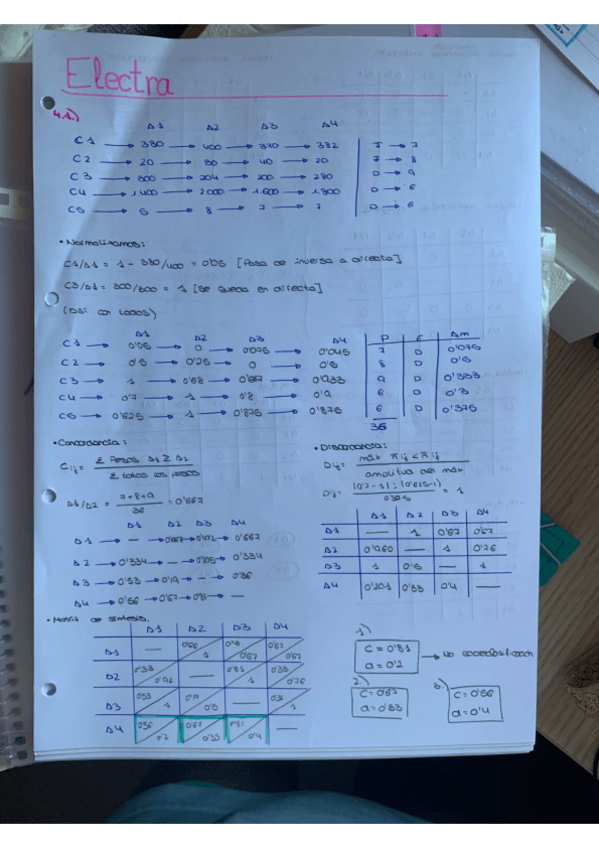 Electra
4.1)
Δ1 Δ2 Δ3 Δ4
C1 → 380 → 400 → 370 → 382 I → 7
C2 → 20 → 30 → 40 → 20 I → 8
C3 → 300 → 204 → 200 → 280 D → 9
C4 → 1.400 → 2000 → 1.600 → 1.800 D → 6
C5 → 5 → 8 → 7 → 7 D → 6
• Normalizamos:
C1/Δ1 = 1 - 380/400 = 0'05 [Pasa de inversa a directa]
C3/Δ1 = 300/300 = 1 [Se queda en directa]
(Así con todos)
Δ1 Δ2 Δ3 Δ4 P E Δm
C1 → 0'05 → 0 → 0'075 → 0'045 7 D 0'075
C2 → 0'5 → 0'25 → 0 → 0'5 8 D 0'5
C3 → 1 → 0'68 → 0'667 → 0'933 9 D 0'333
C4 → 0'7 → 1 → 0'8 → 0'9 6 D 0'3
C5 → 0'625 → 1 → 0'875 → 0'875 6 D 0'375
36
• Concordancia:
Cij = Σ Pesos Δ1 ≥ Δ2 / Σ todos los pesos
Δ1/Δ2 = 7+8+9 / 36 = 0'667
Δ1 Δ2 Δ3 Δ4
Δ1 → — → 0'667 → 0'472 → 0'667
Δ2 → 0'334 → — → 0'805 → 0'334
Δ3 → 0'53 → 0'19 → — → 0'36
Δ4 → 0'56 → 0'67 → 0'81 → —
• Discordancia:
Dij = máx πij < πij / amplitud del máx
Dij = |0'7-1| ; |0'625-1| / 0'375 = 1
Δ1 Δ2 Δ3 Δ4
Δ1 — 1 0'67 0'67
Δ2 0'960 — 1 0'76
Δ3 1 0'5 — 1
Δ4 0'201 0'33 0'4 —
• Matriz de síntesis.
Δ1 Δ2 Δ3 Δ4
Δ1 — 0'66 1 0'67 0'67 0'67
Δ2 0'33 0'96 — 0'81 1 0'33 0'76
Δ3 0'53 1 0'19 0'5 — 0'36 1
Δ4 0'56 0'2 0'67 0'33 0'81 0'4 —
1)
C = 0'81
d = 0'2
→ no
2)
C = 0'67
d = 0'33
3)
C = 0'56
d = 0'4